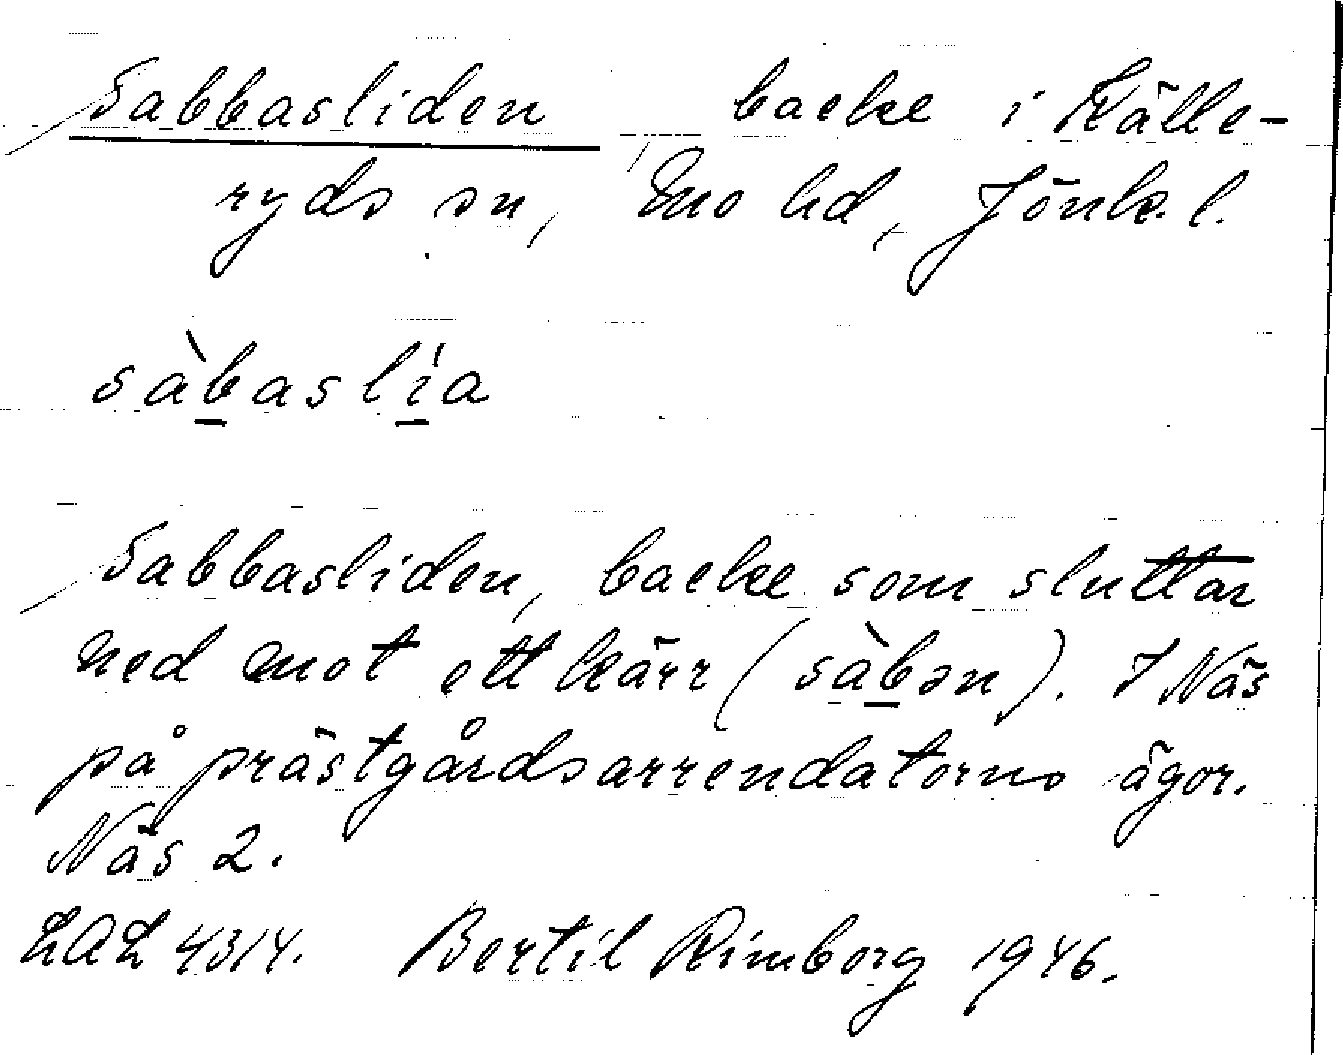 Sabbasliden backe i Källe-
ryds sn, Mo hd, Jönk. l.
sàbaslía
Sabbasliden, backe som sluttar
ned mot ett kärr (sàbən). I Näs
på prästgårdsarrendatorns ägor.
Näs 2.
LAL 4314. Bertil Rimborg 1946.